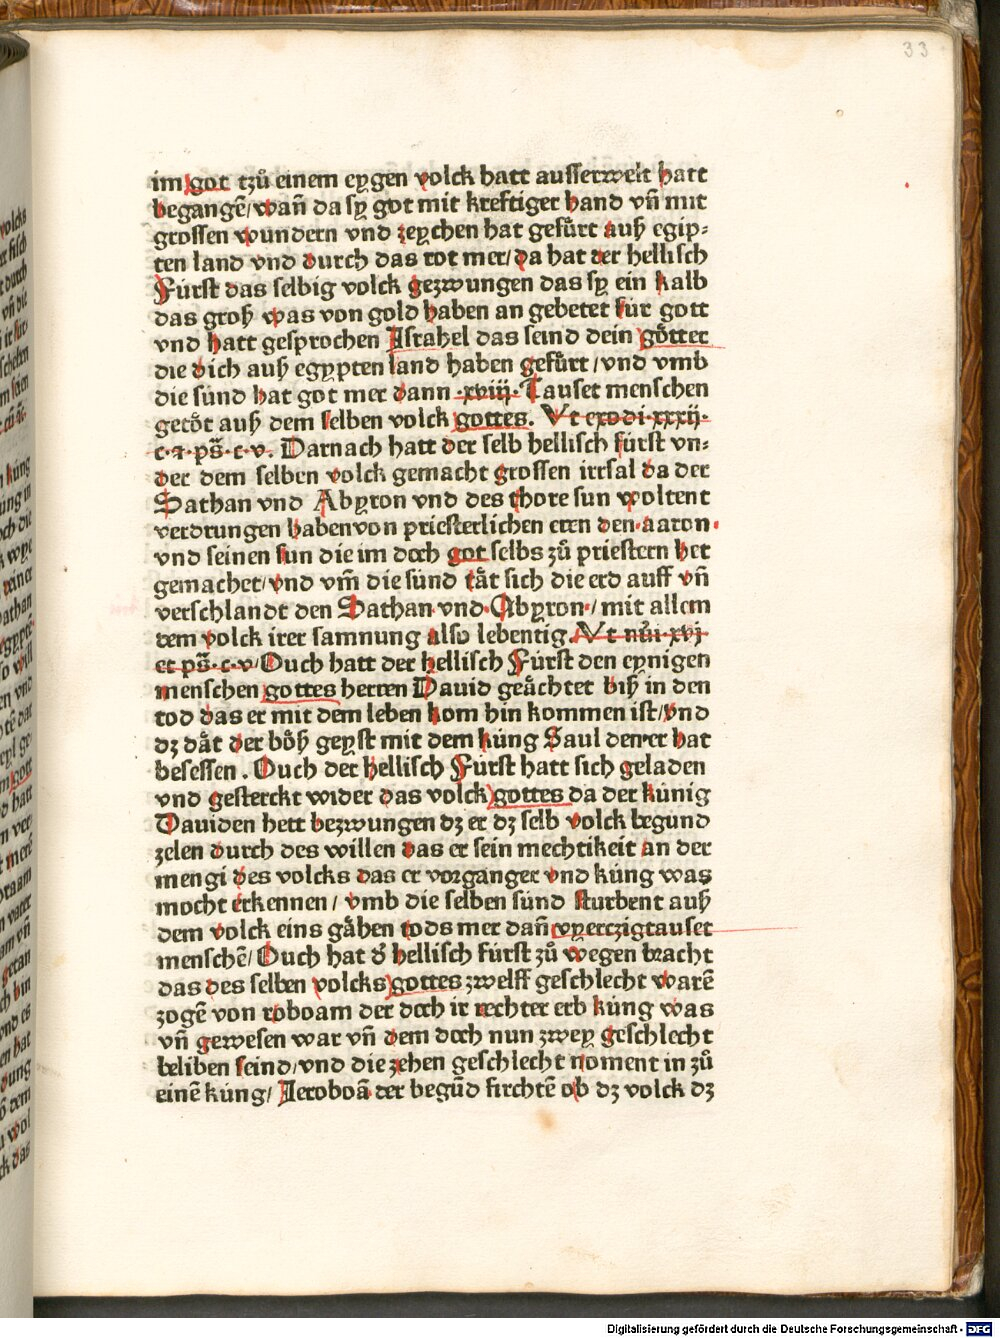 33
im got tzů einem eygen volck hatt ausserwelt hatt
begangē/wañ da sy got mit kreftiger hand vñ mit
grossen wundern vnd zeychen hat gefůrt auß egip⸗
ten land vnd durch das rot mer/da hat der hellisch
Fürst das selbig volck gezwungen das sy ein kalb
das groß was von gold haben an gebetet für gott
vnd hatt gesprochen Israhel das seind dein götter
die dich auß egypten land haben gefůrt/vnd vmb
die sünd hat got mer dann ·xviij· Tauset menschen
getöt auß dem selben volck gottes. Vt exodi·xxxij·
c·⁊·ps̄·c·v. Darnach hatt der selb hellisch fürst vn⸗
der dem selben volck gemacht grossen irrsal da der
Dathan vnd Abyron vnd des thore sun woltent
verdrungen haben von priesterlichen eren den·aaron·
vnd seinen sun die im doch got selbs zů priestern het
gemachet/vnd vm̄ die sünd tät sich die erd auff vñ
verschlandt den Dathan·vnd·Abyron·/mit allem
dem volck irer samnung also lebentig. Vt nūi·xvj·
et ps̄·c·v/Ouch hatt der hellisch Fürst den eynigen
menschen gottes herren Dauid geächtet biß in den
tod das er mit dem leben kom hin kommen ist/vnd
dꝫ dät der böß geyst mit dem küng Saul den·er hat
besessen. Ouch der hellisch Fürst hatt sich geladen
vnd gesterckt wider das volck gottes da der künig
Dauiden hett bezwungen dꝫ er dꝫ selb volck begund
zelen durch des willen das er sein mechtikeit an der
mengi des volcks das er vorganger vnd küng was
mocht erkennen/vmb die selben sünd sturbent auß
dem volck eins gähen tods mer dañ vyerczigtauset
menschē/Ouch hat d̕ hellisch fürst zů wegen bracht
das des selben volcks gottes zwelff geschlecht warē
zogē von roboam der doch ir rechter erb küng was
vñ gewesen war vñ dem doch nun zwey geschlecht
beliben seind/vnd die zehen geschlecht noment in zů
einē küng/Ieroboā der begūd firchtē ob dꝫ volck dꝫ
Digitalisierung gefördert durch die Deutsche Forschungsgemeinschaft - DFG